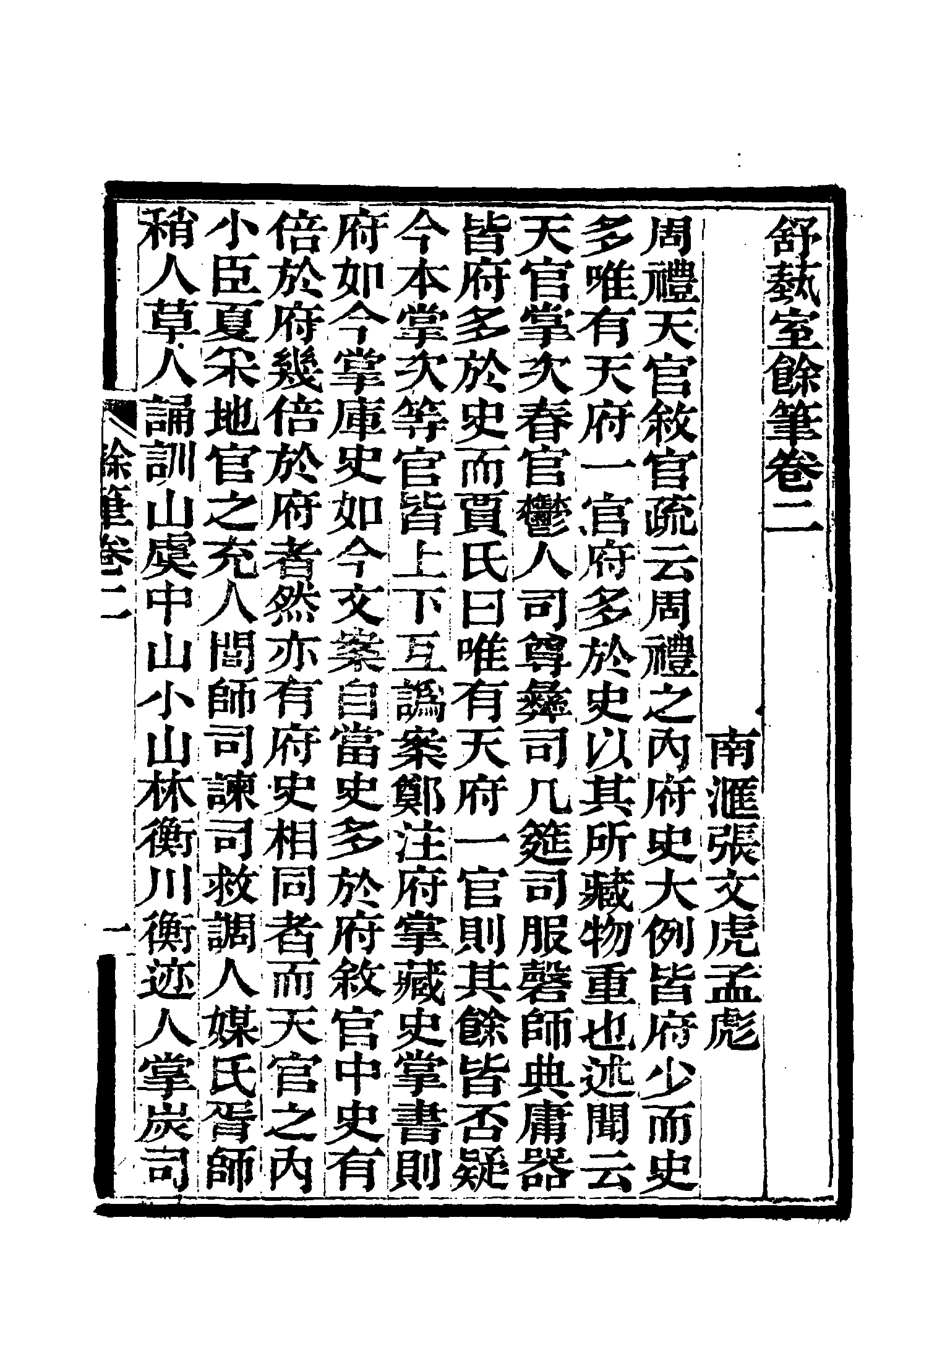 舒蓺室餘筆卷二
南滙張文虎孟彪
周禮天官敘官疏云周禮之內府史大例皆府少而史
多唯有天府一官府多於史以其所藏物重也述聞云
天官掌次春官鬱人司尊彝司几筵司服磬師典庸器
皆府多於史而賈氏曰唯有天府一官則其餘皆否疑
今本掌次等官皆上下互譌案鄭注府掌藏史掌書則
府如今掌庫史如今文案自當史多於府敘官中史有
倍於府幾倍於府者然亦有府史相同者而天官之內
小臣夏采地官之充人閭師司諫司救調人媒氏胥師
稍人草人誦訓山虞中山小山林衡川衡迹人掌炭司
餘筆卷二
一